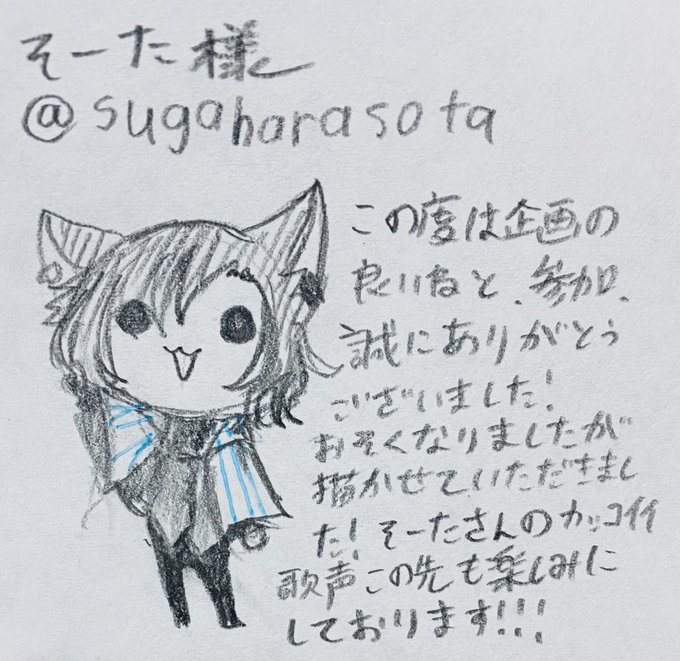 そーた様
@sugaharasota
この度は企画の
良いねと、参加、
誠にありがとう
ございました!
おそくなりましたが
描かせていただきまし
た!そーたさんのカッコイイ
歌声この先も楽しみに
しております!!!